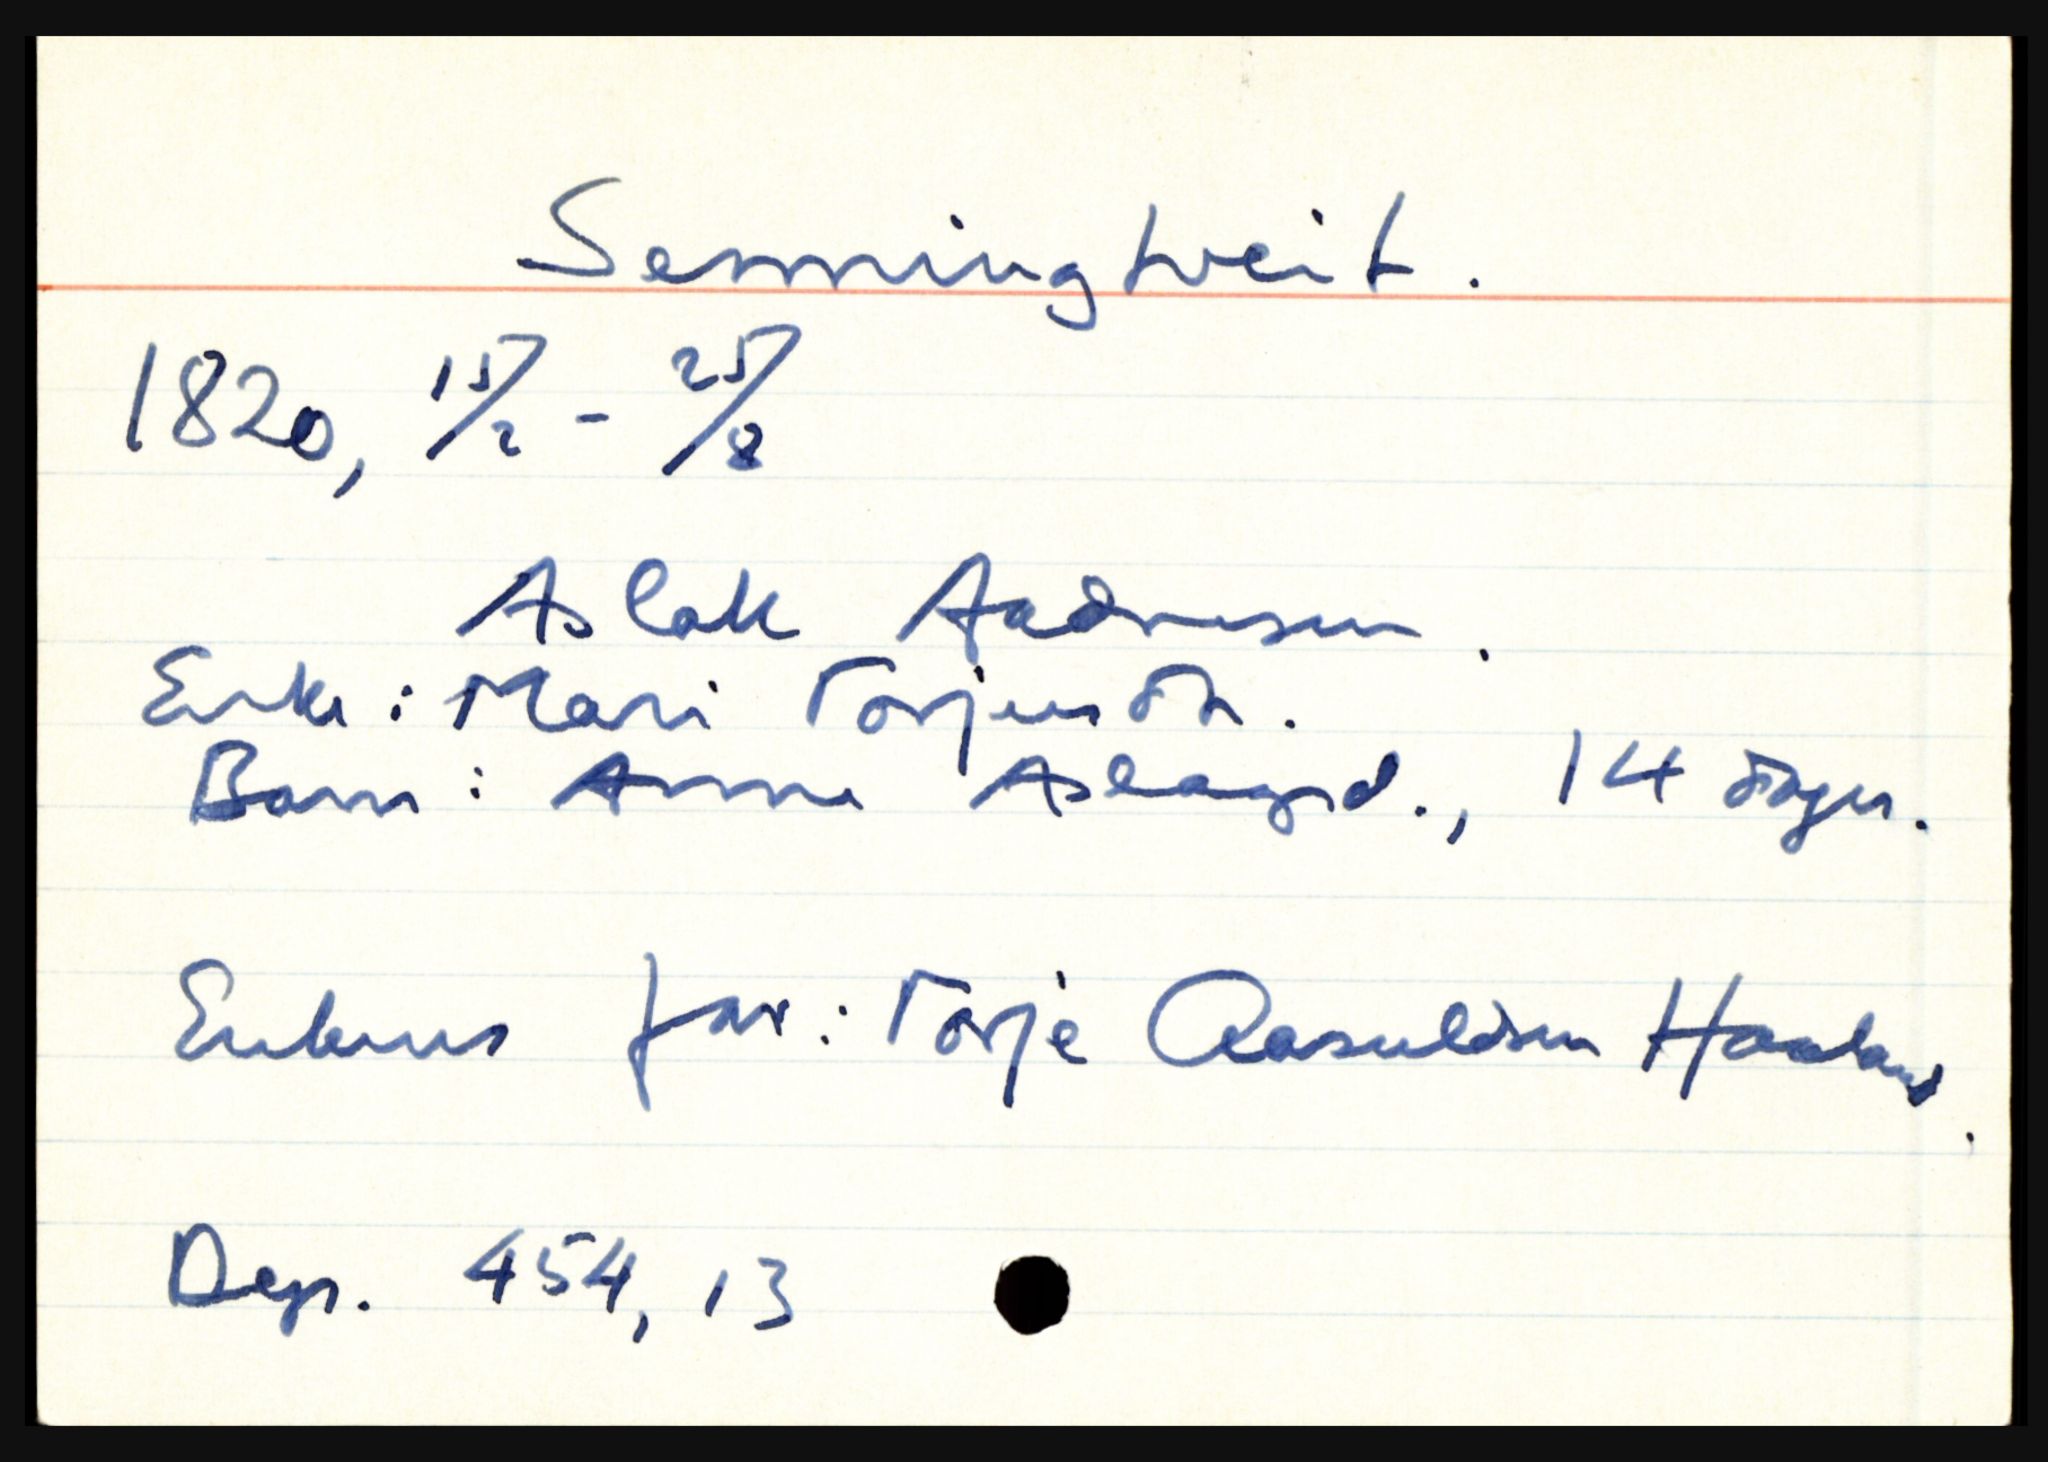 Senningtveit.
1820, 15/2 - 25/8
Aslak Aadnesen.
Enke: Mari Torjusdtr.
Barn: Anne Aslagsd., 14 dager.
Enkens far: Torje Aasuldsen Haaland.
Dep. 454, 13